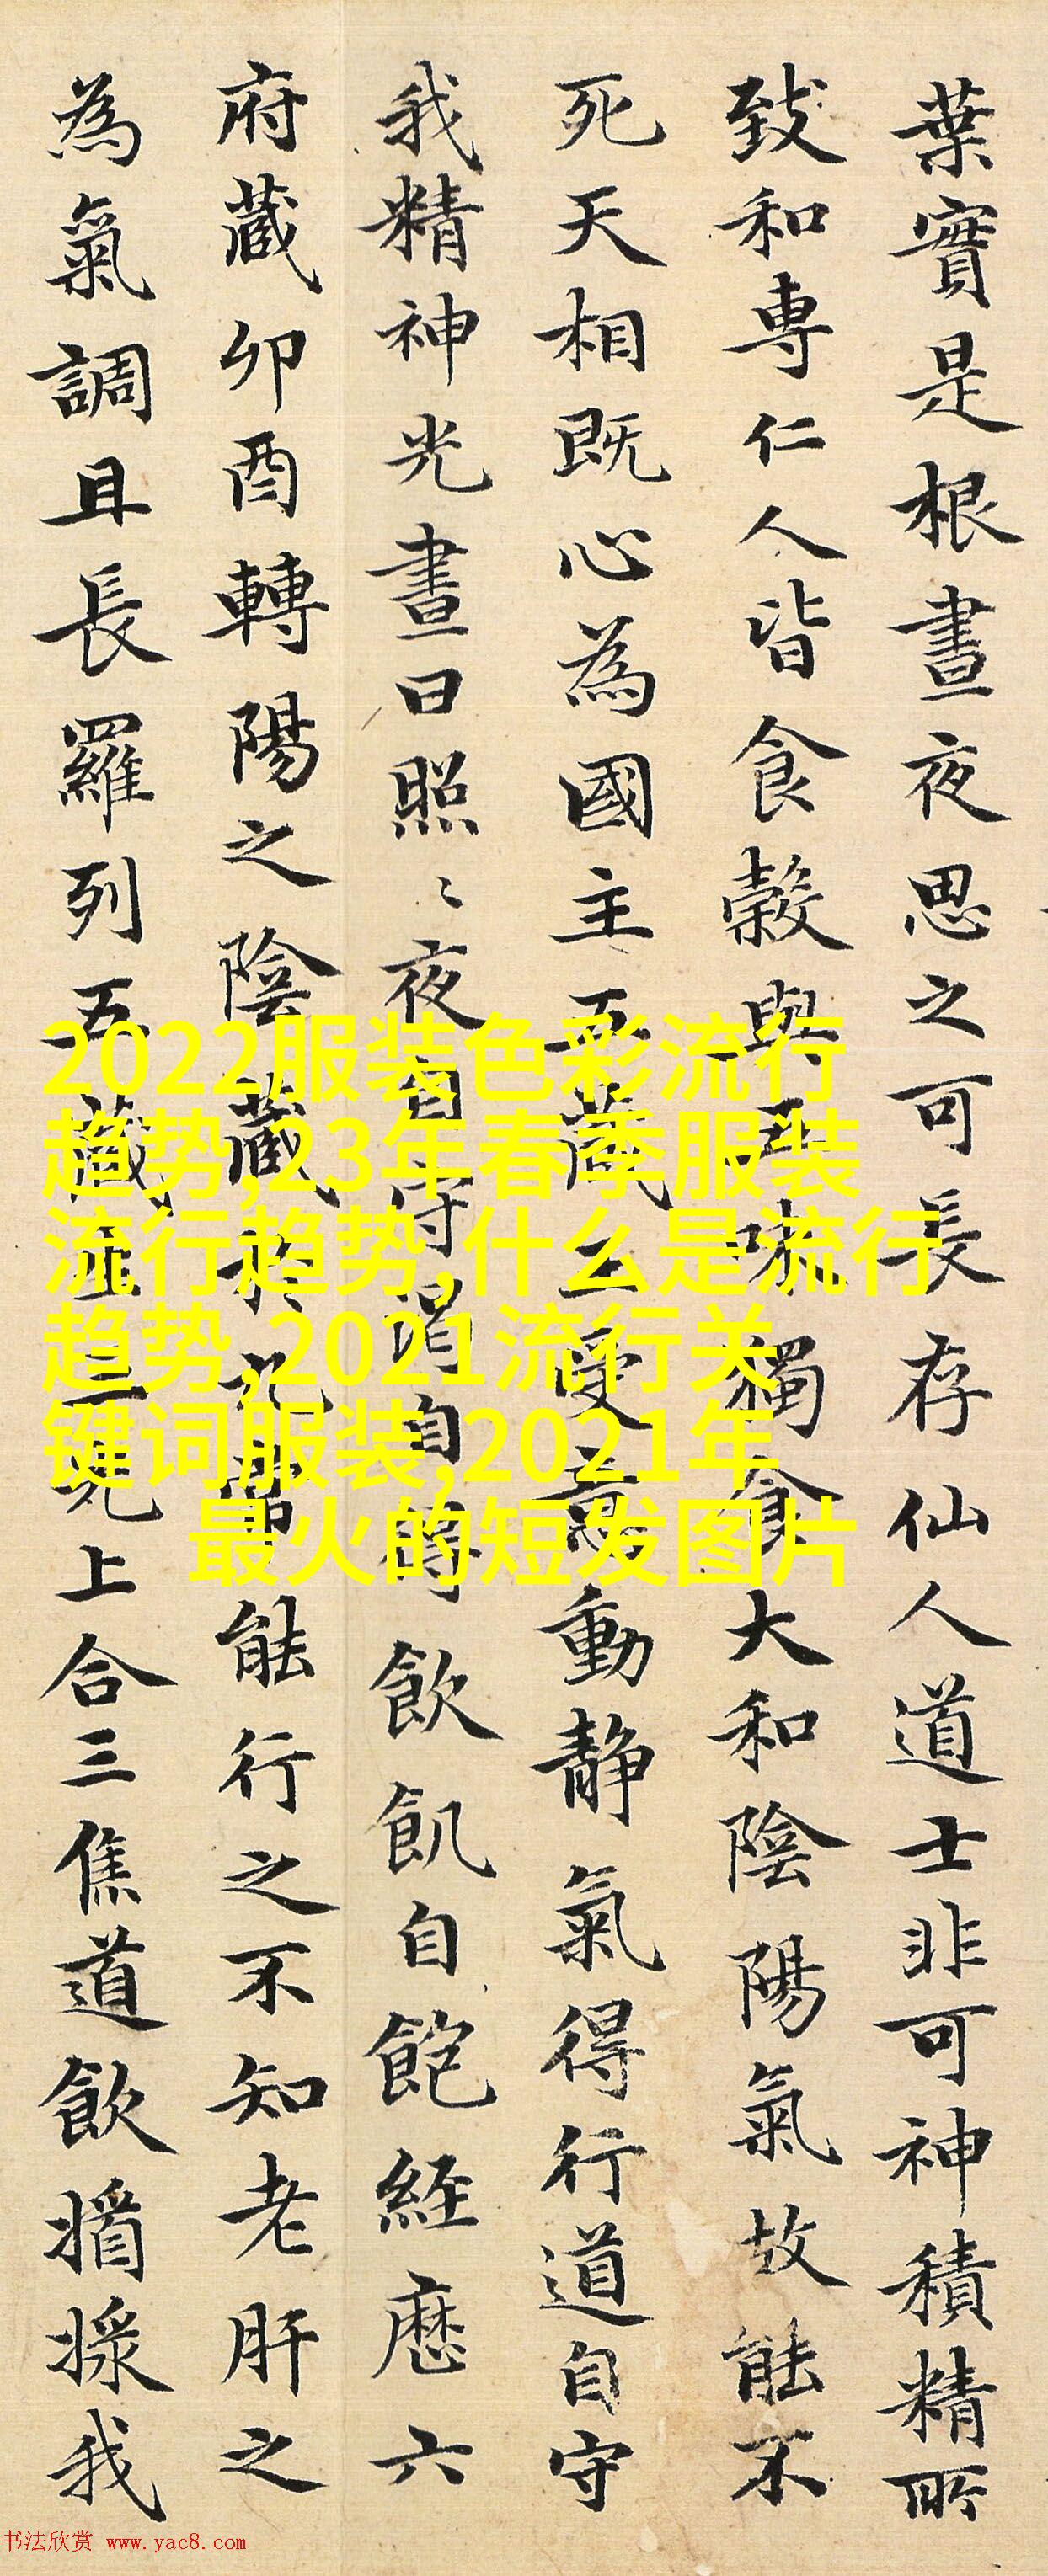 葉實是根晝夜思之可長存仙人道士非可神積精所
致和専仁人皆食穀與五味獨食大和陰陽氣故能不
死天相既心為國主五藏王受意動静氣得行道自守
我精神光晝日照〻夜自守渴自得飲飢自飽經歷六
府藏卯酉轉陽之陰藏於九常能行之不知老肝之
為氣調且長羅列五藏三光上合三焦道飲我
2022服装色彩流行
趋势,23年春季服装
流行趋势,什么是流行
趋势,2021流行关
键词服装,2021年
最火的短发图片
书法欣赏 www.yac8.com